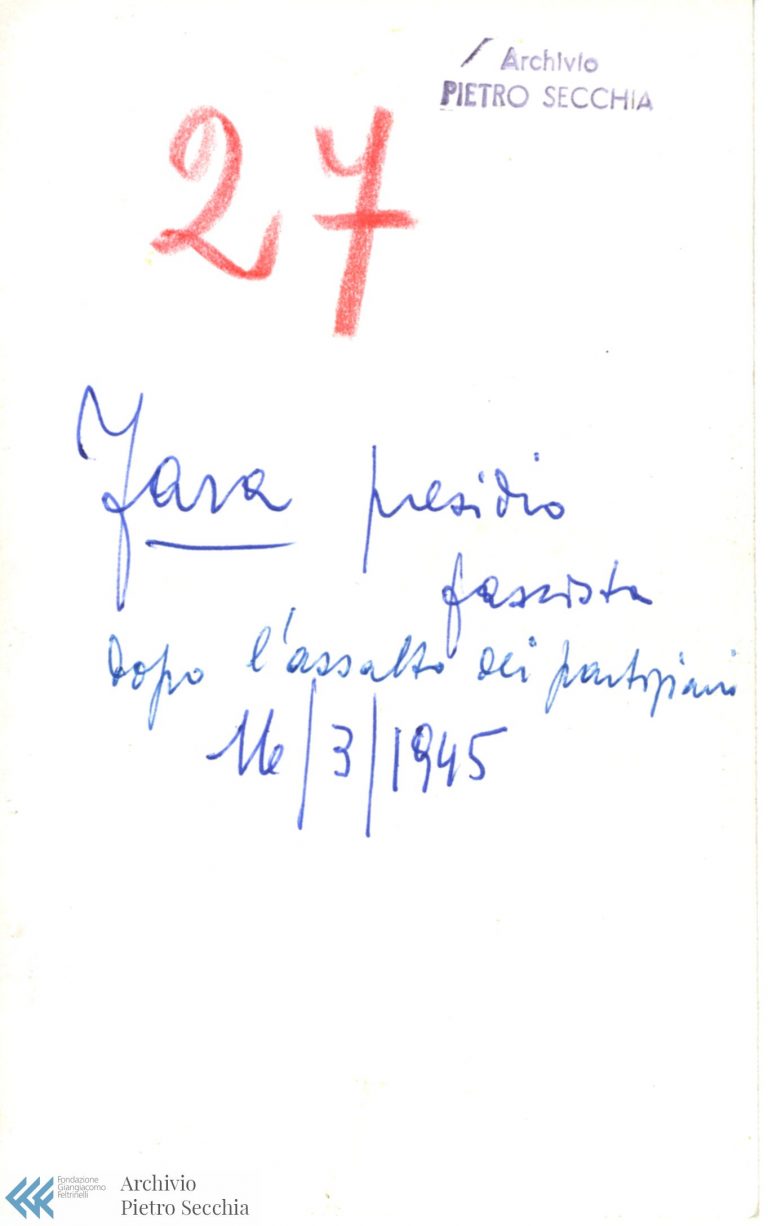 Archivio
PIETRO SECCHIA
27
Fara presidio
fascista
dopo l'assalto dei partigiani
16/3/1945
Fondazione
Giangiacomo
Feltrinelli
Archivio
Pietro Secchia